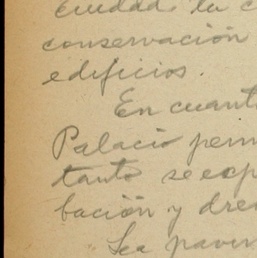 ciudad. la c
conservación
edificios.
En cuant
Palacio perm
tanto se exp
bación y dre
Sea pavim